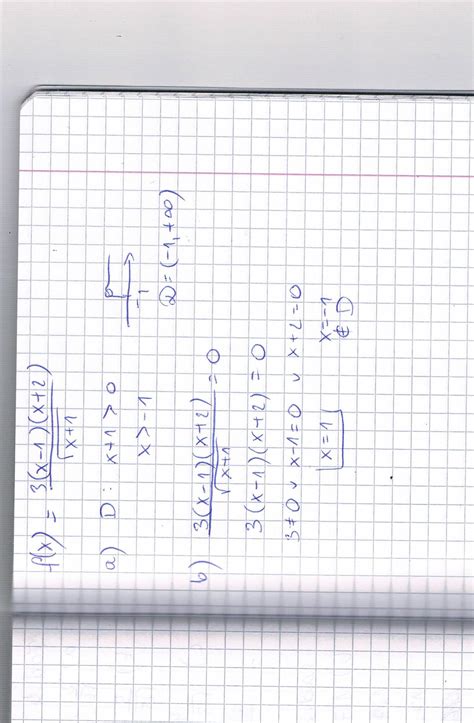 f(x) = 3(x-1)(x+2) / √x+1
a) D: x+1 > 0
x > -1
-1
D = (-1, +∞)
b) 3(x-1)(x+2) / √x+1 = 0
3(x-1)(x+2) = 0
3≠0 ∨ x-1=0 ∨ x+2=0
x=1
x=-1
∉ D